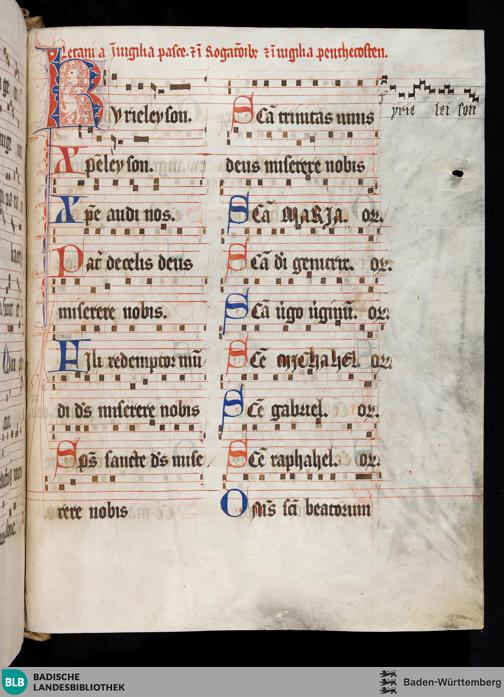 Letania in vigilia pasce. et in Rogationibꝫ et in vigilia penthecosten.
Kyrieleyson.
Xpeleyson.
Xp̄e audi nos.
Pat̄ de celis deus
miserere nobis.
Fili redemptor mū
di d̄s miserere nobis
Sp̄s sancte d̄s mise
rere nobis
Sc̄a trinitas unus
deus miserere nobis
Sc̄a MARIA. or̄.
Sc̄a di genitrix. or̄.
Sc̄a ūgo ūginū. or̄.
Sc̄e michahel or̄.
Sc̄e gabriel. or̄.
Sc̄e raphahel. or̄.
Om̄s sc̄i beatorum
yrie lei son
BLB BADISCHE
LANDESBIBLIOTHEK
Baden-Württemberg